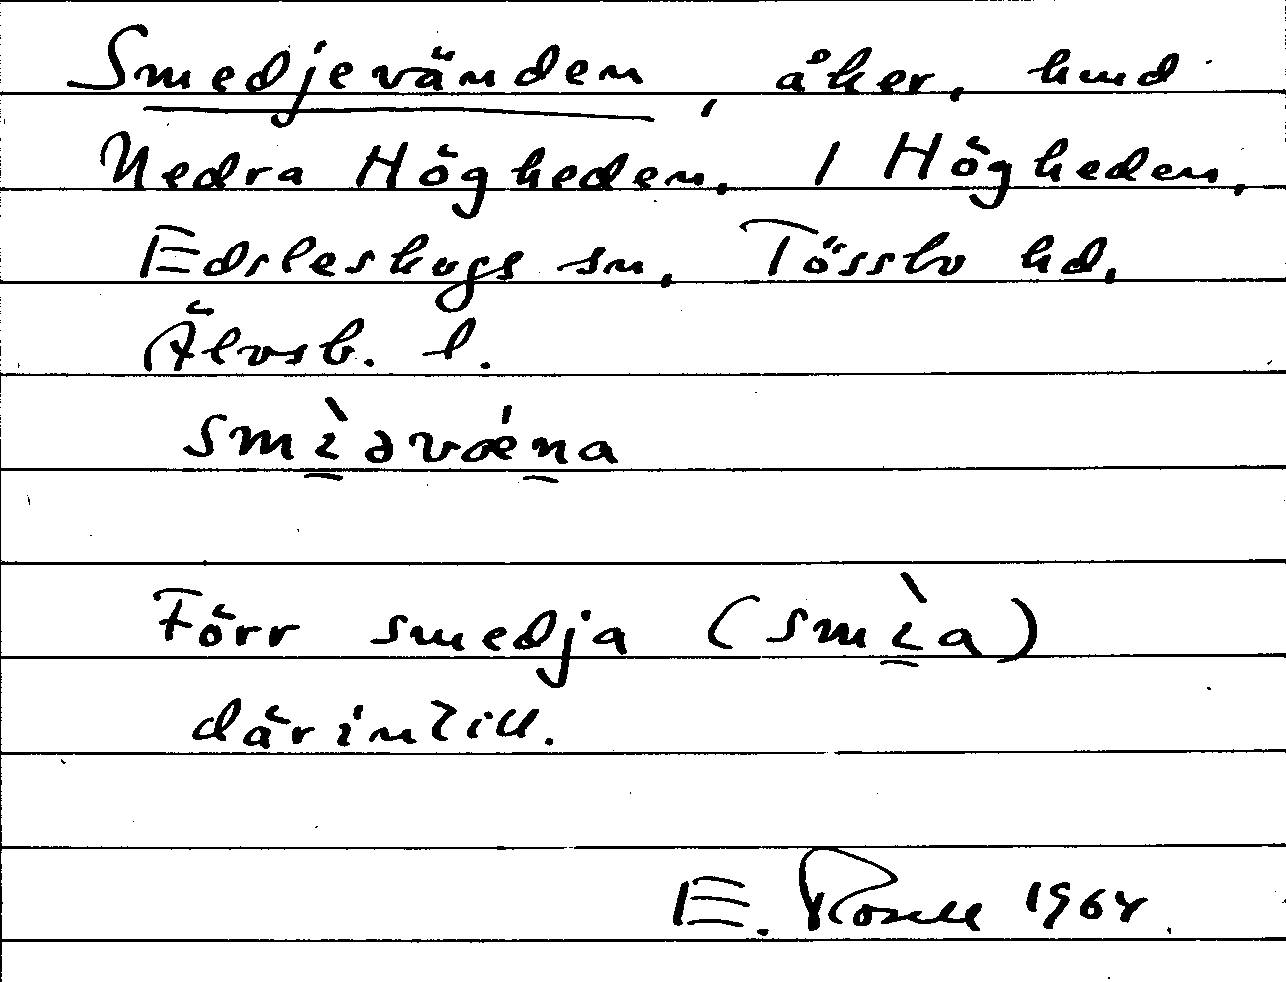 Smedjevänden, åker, hmd
Nedra Högheden, 1 Högheden,
Edsleskogs sn, Tössbo hd,
Älvsb. l.
smìəvǽna
Förr smedja (smìa)
därintill.
E. Rosell 1964